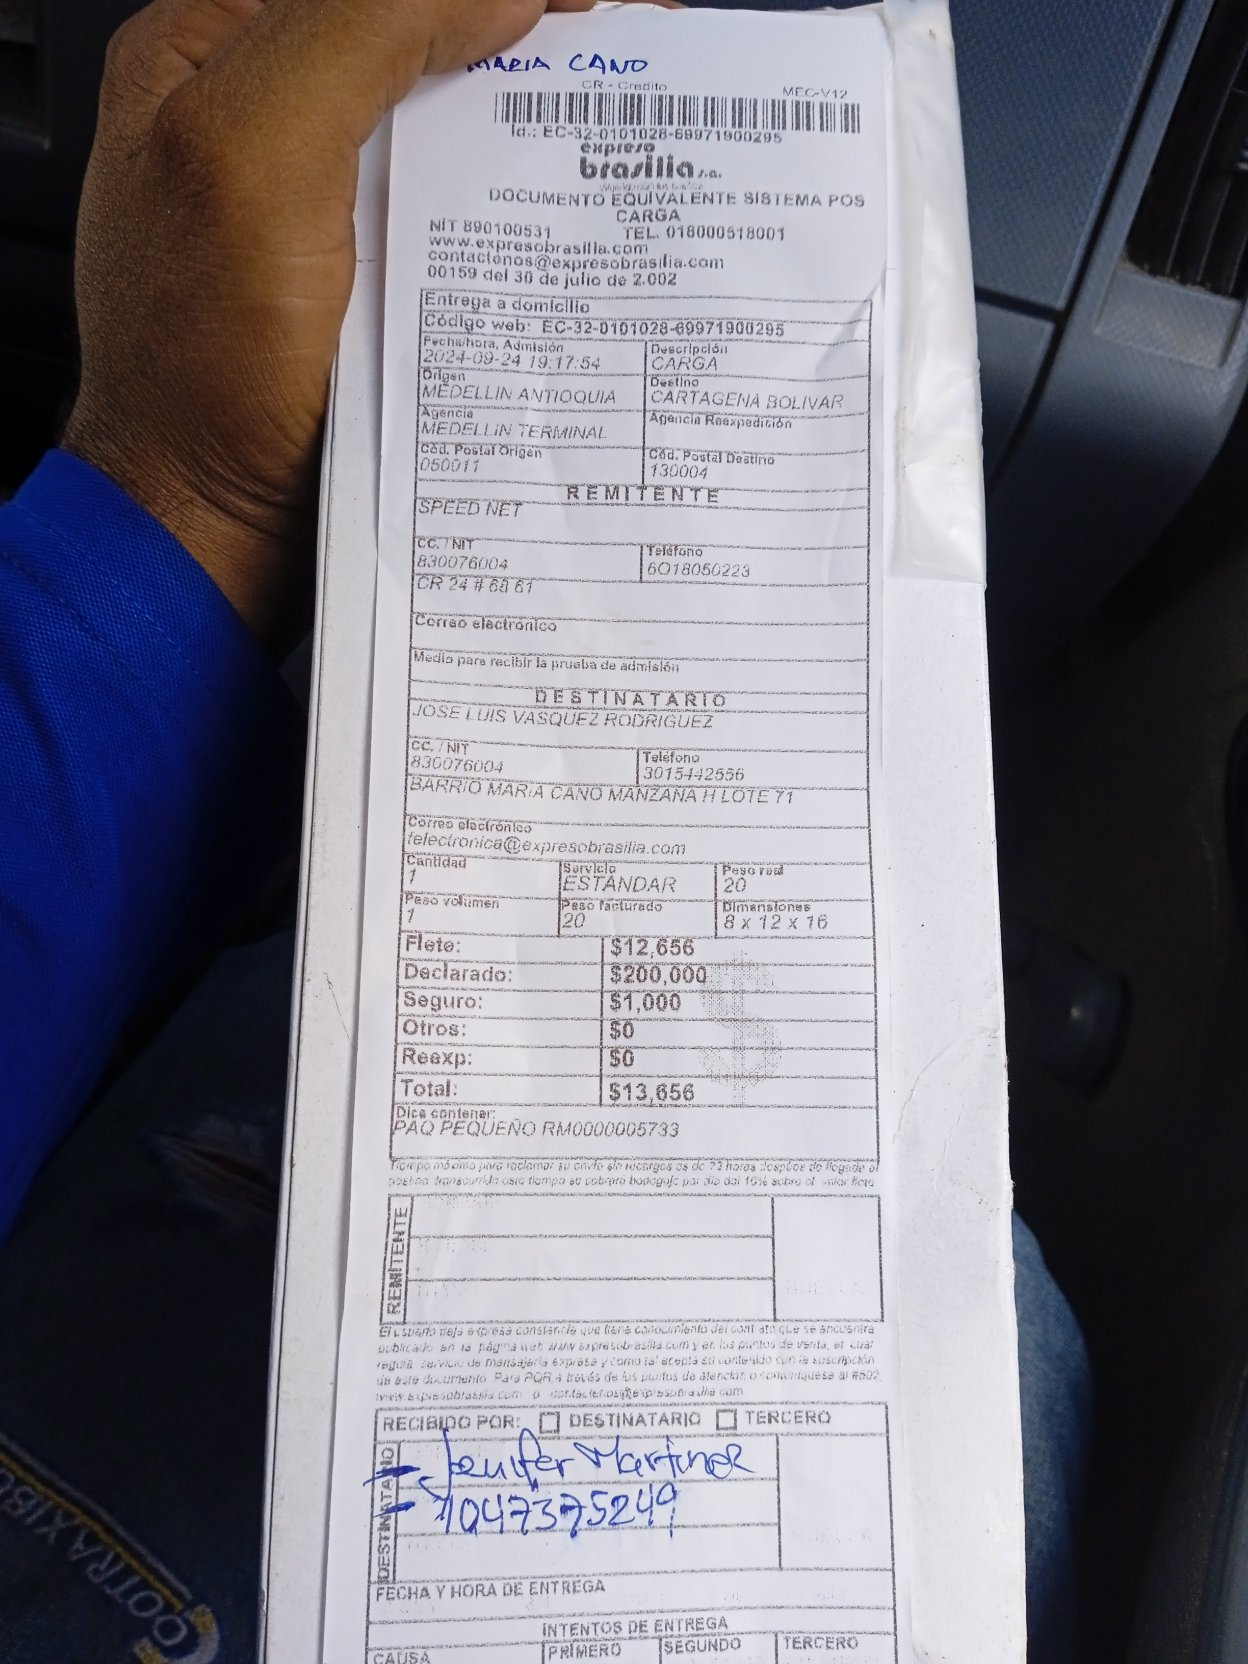 MARIA CANO
CR - Credito MEC-V12
Id.: EC-32-0101028-69971900295
expreso
brasilia s.a.
DOCUMENTO EQUIVALENTE SISTEMA POS
CARGA
NIT 890100531 TEL. 018000518001
www.expresobrasilia.com
contactenos@expresobrasilia.com
00159 del 30 de julio de 2.002
Entrega a domicilio
Código web: EC-32-0101028-69971900295
Fecha/hora, Admisión Descripción
2024-09-24 19:17:54 CARGA
Origen Destino
MEDELLIN ANTIOQUIA CARTAGENA BOLIVAR
Agencia Agencia Reexpedición
MEDELLIN TERMINAL
Cód. Postal Origen Cód. Postal Destino
050011 130004
REMITENTE
SPEED NET
CC. / NIT Teléfono
830076004 6O18050223
CR 24 # 68 61
Correo electrónico
Medio para recibir la prueba de admisión
DESTINATARIO
JOSE LUIS VASQUEZ RODRIGUEZ
CC. / NIT Teléfono
830076004 3015442556
BARRIO MARIA CANO MANZANA H LOTE 71
Correo electrónico
felectronica@expresobrasilia.com
Cantidad Servicio Peso real
1 ESTANDAR 20
Peso volumen Peso facturado Dimensiones
1 20 8 x 12 x 16
Flete: $12,656
Declarado: $200,000
Seguro: $1,000
Otros: $0
Reexp: $0
Total: $13,656
Dice contener:
PAQ PEQUEÑO RM0000005733
Tiempo máximo para reclamar su envío sin recargos es de 72 horas después de llegada al
destino, transcurrido este tiempo se cobrará bodegaje por día del 10% sobre el valor flete
REMITENTE
El usuario deja expresa constancia que tiene conocimiento del contrato que se encuentra
publicado en la página web www.expresobrasilia.com y en los puntos de venta, el cual
regula servicio de mensajería expresa y como tal acepta su contenido con la suscripción
de este documento. Para PQR a través de los puntos de atención, o comuníquese al
www.expresobrasilia.com o contactenos@expresobrasilia.com
RECIBIDO POR: DESTINATARIO TERCERO
DESTINATARIO
Jenifer Martinez
1047375249
FECHA Y HORA DE ENTREGA
INTENTOS DE ENTREGA
CAUSA PRIMERO SEGUNDO TERCERO
COTRAXIBU